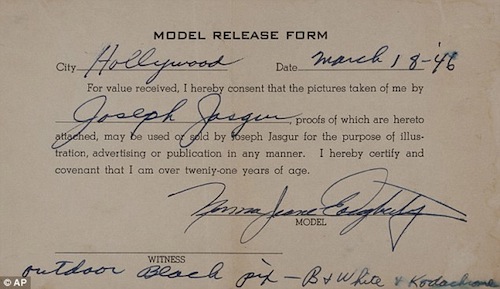 MODEL RELEASE FORM
City Hollywood Date March 18-'46
For value received, I hereby consent that the pictures taken of me by
Joseph Jasgur, proofs of which are hereto
attached, may be used or sold by Joseph Jasgur for the purpose of illus-
tration, advertising or publication in any manner. I hereby certify and
covenant that I am over twenty-one years of age.
Norma Jeane Dougherty
MODEL
WITNESS
outdoor Beach pix - B & White & Kodachrome
© AP